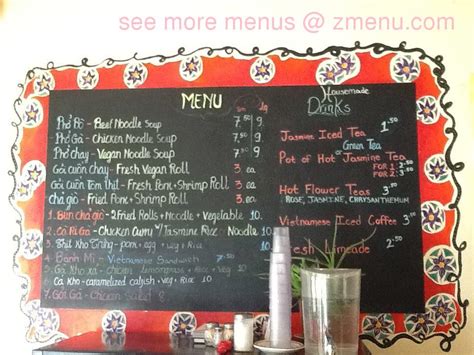 see more menus @ zmenu.com
MENU
sm lg
Phở Bò - Beef Noodle Soup 7.50 9.
Phở Gà - Chicken Noodle Soup 7.50 9.
Phở chay - Vegan Noodle Soup 7.50 9.
Gỏi cuốn chay - Fresh Vegan Roll 3. ea
Gỏi cuốn Tôm thịt - Fresh Pork + Shrimp Roll 3. ea
chả giò - Fried Pork + Shrimp Roll 3. ea
1. Bún chả giò - 2 Fried Rolls + Noodle + Vegetable 10.
2. Cà Ri Gà - Chicken Curry w/ Jasmine Rice or Noodle 10.
3. Thịt Kho Trứng - pork + egg + veg + Rice 10.
4. Bánh Mì - Vietnamese Sandwich
5. Gà Kho xả - chicken Lemongrass + veg + Rice
6. Cá Kho - caramelized catfish + veg + Rice 10.
7. Gỏi Gà - Chicken Salad 8
Housemade
Drinks
Jasmine Iced Tea 1.50
or Green Tea
Pot of Hot Jasmine Tea
FOR 1
FOR 2
Hot Flower Teas 3.50
- ROSE, JASMINE, CHRYSANTHEMUM
Vietnamese Iced Coffee 3.50
Fresh Limeade 2.